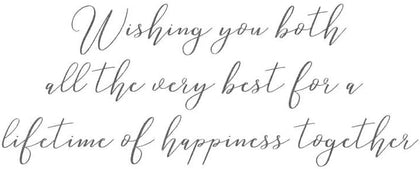 Wishing you both
all the very best for a
lifetime of happiness together